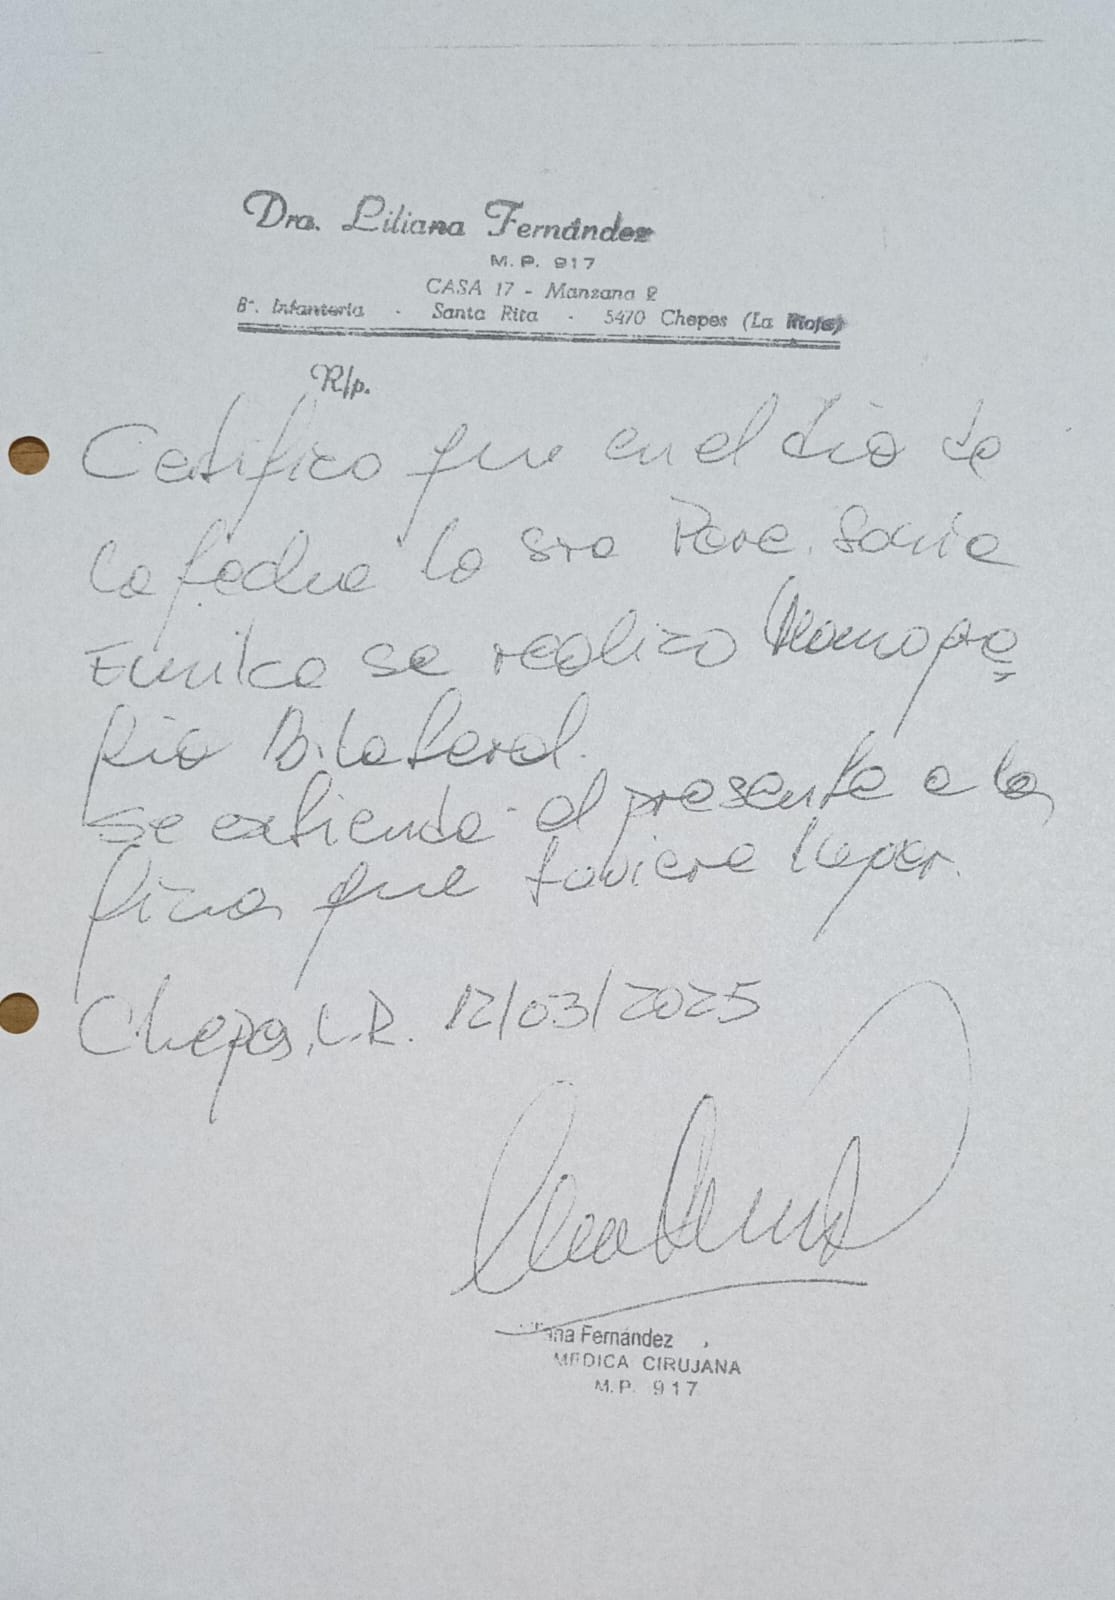 Dra. Liliana Fernández
M. P. 917
CASA 17 - Manzana 2
B°. Infantería - Santa Rita - 5470 Chepes (La Rioja)
R/p.
Certifico que en el día de
la fecha la Sra Sonia
se realizo Mamogra
fia Bilateral.
Se extiende el presente a los
fines que tuviere lugar.
Chepes, L.R. 12/03/2025
Fernández
MEDICA CIRUJANA
M.P. 917